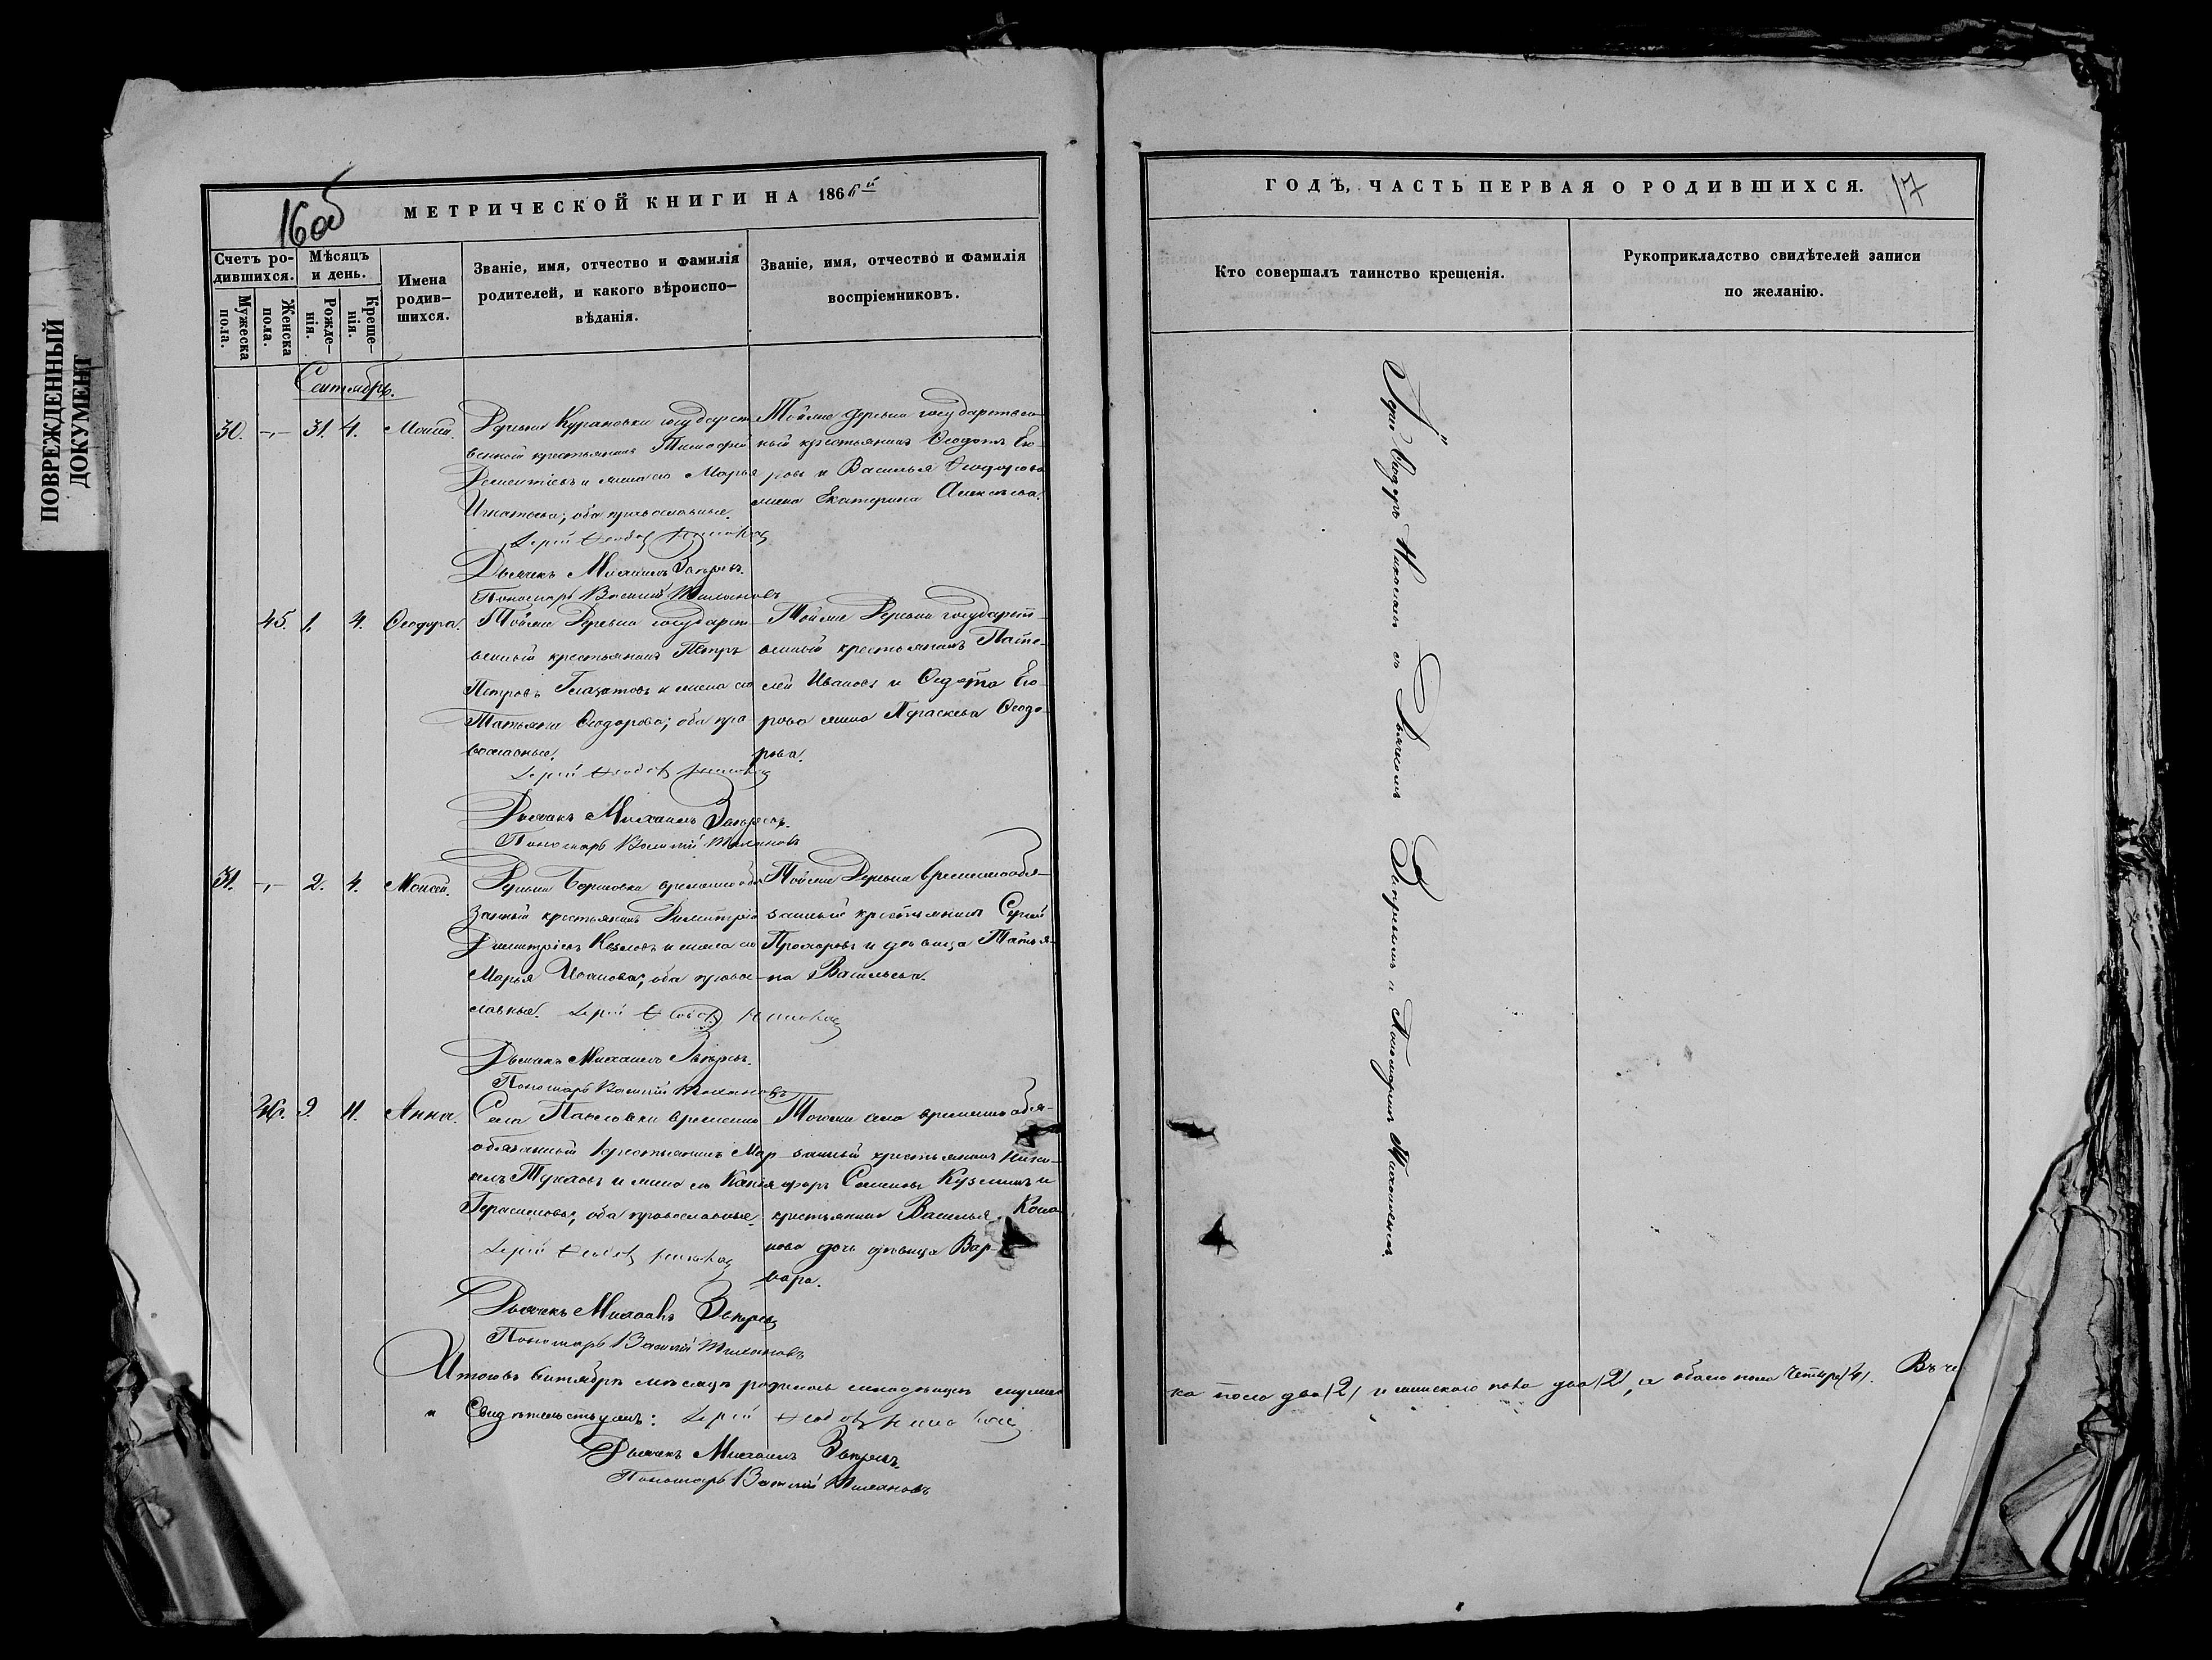 ПОВРЕЖДЕННЫЙ
ДОКУМЕНТ
16об
МЕТРИЧЕСКОЙ КНИГИ НА 1866й
Счетъ ро-
дившихся.
Мужеска
пола.
Женска
пола.
Мѣсяцъ
и день.
Рожде-
нія.
Креще-
нія.
Имена
родив-
шихся.
Званіе, имя, отчество и фамилія
родителей, и какого вѣроиспо-
вѣданія.
Званіе, имя, отчество и фамилія
воспріемниковъ.
Сентябрь.
30. -,,- 31. 4. Моисей.
Деревни Курановки государст
венной крестьянинъ Тимофей
Дементіевъ и жена его Марья
Игнатьева; оба православные.
Іерей Ѳеодоръ
Дьячекъ Михаилъ
Пономарь Василій Тихановъ
Тойже деревни государствен
ный крестьянинъ Ѳеодотъ Его-
ровъ и Василья Ѳеодорова
жена Екатерина Алексѣева.
45. 1. 4. Ѳеодора.
Тойже Деревни государст
венный крестьянинъ Петръ
Петровъ и жена его
Татьяна Ѳеодорова; оба пра
вославные.
Іерей Ѳеодоръ
Дьячекъ Михаилъ
Пономарь Василій Тихановъ
Тойже Деревни государст-
венный крестьянинъ Панте-
лей Ивановъ и Ѳедота Его-
рова жена Параскева Ѳеодо-
рова.
31. -,,- 2. 4. Моисей.
Деревни временно обя
занный крестьянинъ Димитрій
Димитріевъ Козловъ и жена его
Марья Иванова; оба право-
славные. Іерей Ѳеодоръ
Дьячекъ Михаилъ
Пономарь Василій Тихановъ
Тойже Деревни временнообя-
занный крестьянинъ Сергей
Прохоровъ и дѣвица Татья-
на Васильева.
46. 9. 11. Анна.
Села Павловки временно
обязанный крестьянинъ
и жена его
Герасимова; оба православные.
Іерей Ѳеодоръ
Дьячекъ Михаилъ
Пономарь Василій Тихановъ
Тогоже села временнообя-
занный крестьянинъ Ники-
форъ Семеновъ Кузминъ и
крестьянина Василья Коно
нова дочь дѣвица Вар-
вара.
Итого въ Сентябрѣ мѣсяцѣ родилось младенцевъ мужес
Свидѣтельствуемъ: Іерей Ѳеодоръ
Дьячекъ Михаилъ
Пономарь Василій Тихановъ
ГОДЪ, ЧАСТЬ ПЕРВАЯ О РОДИВШИХСЯ.
17
Кто совершалъ таинство крещенія.
Рукоприкладство свидѣтелей записи
по желанію.
Іерей Ѳеодоръ съ Дьячкомъ и Пономаремъ
ка пола два (2) и женскаго пола два (2), а обоего пола Четыре (4).